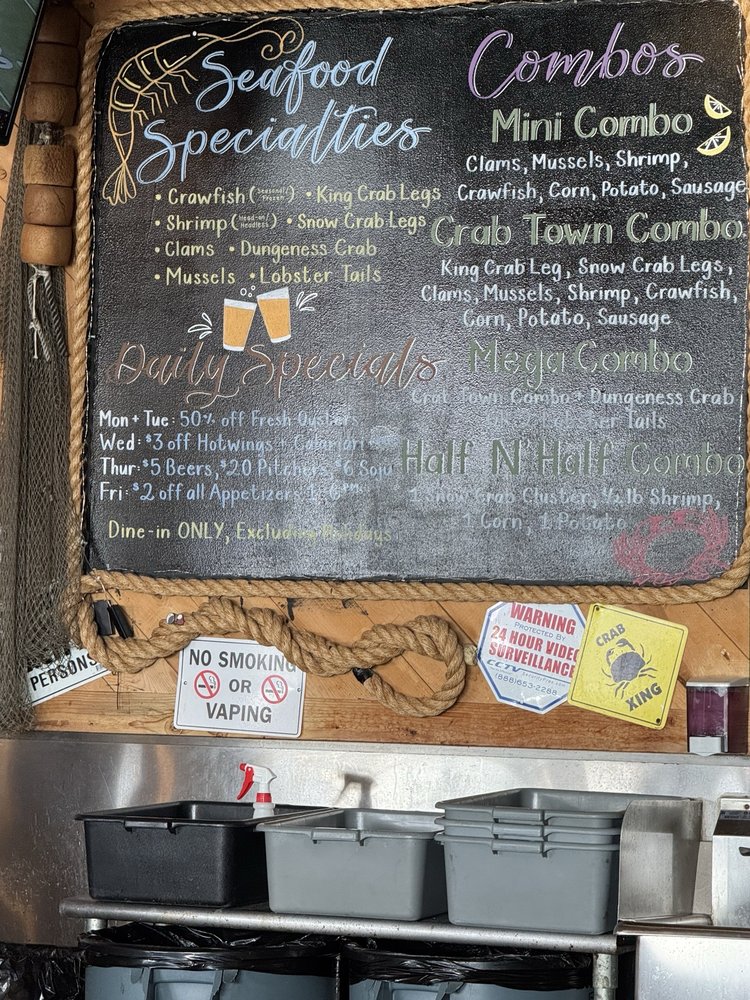 Seafood
Specialties
• Crawfish (Seasonal/Frozen) • King Crab Legs
• Shrimp (Head-on/Headless) • Snow Crab Legs
• Clams • Dungeness Crab
• Mussels • Lobster Tails
Daily Specials
Mon + Tue: 50% off Fresh Oysters
Wed: $3 off Hotwings + Calamari
Thur: $5 Beers, $20 Pitchers, $6 Soju
Fri: $2 off all Appetizers 1-6pm
Dine-in ONLY, Excluding Holidays
Combos
Mini Combo
Clams, Mussels, Shrimp,
Crawfish, Corn, Potato, Sausage
Crab Town Combo
King Crab Leg, Snow Crab Legs,
Clams, Mussels, Shrimp, Crawfish,
Corn, Potato, Sausage
Mega Combo
Crab Town Combo + Dungeness Crab
Tails
Half N' Half Combo
1 Snow Crab Cluster, 1/2 lb Shrimp,
1 Corn, 1 Potato
PERSONS
NO SMOKING
OR
VAPING
WARNING
PROTECTED BY
24 HOUR VIDEO
SURVEILLANCE
CCTV
(888)653-2288
CRAB
XING